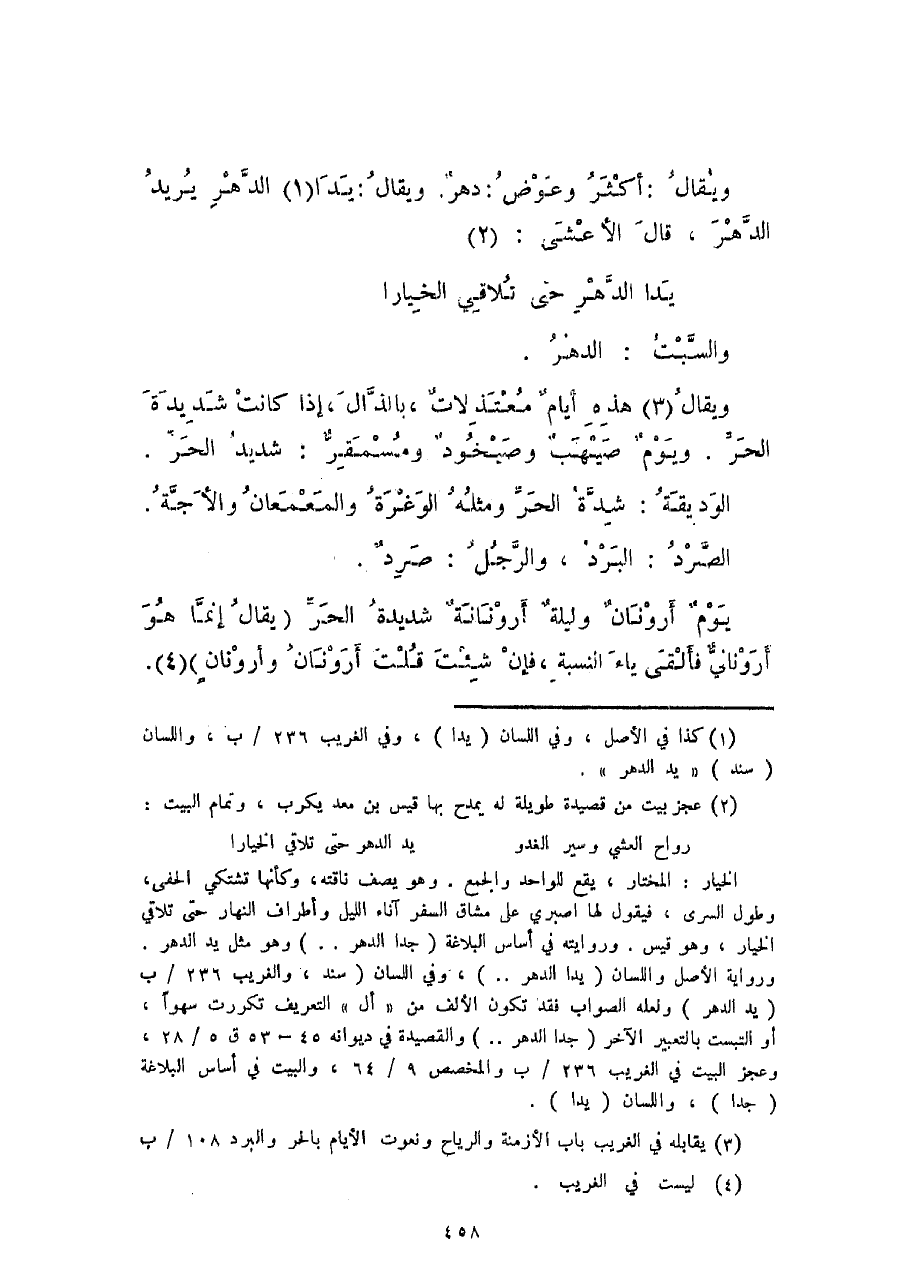 ويُقالُ : أكثَرُ وعَوْضُ : دهرٌ . ويقالُ : يَدَا(١) الدَّهْرِ يُريدُ
الدَّهْرَ ، قالَ الأعْشَى : (٢)
يَدا الدَّهْرِ حتى تُلاقِي الخِيارا
والسَّبْتُ : الدهْرُ .
ويقالُ(٣) هذهِ أيامٌ مُعْتَذِلاتٌ ، بالذَّالَ ، إذا كانتْ شَديدَةَ
الحَرَّ . ويَوْمٌ صَيْهَبٌ وصَيْخُودٌ ومُسْمَقِرٌّ : شديدُ الحَرَّ .
الوَديقَةُ : شِدَّةُ الحَرَّ ومثلُهُ الوَغْرَةُ والمَعْمَعَانُ والأجَّةُ .
الصَّرْدُ : البَرْدُ ، والرَّجُلُ : صَرِدٌ .
يَوْمٌ أَروْنَانٌ وليلةٌ أَروْنَانَةٌ شديدةُ الحَرَّ ( يقالُ إنمَّا هُوَ
أَرَوْنانيٌّ فألْقَى ياءَ النسبةِ ، فإنْ شِئْتَ قُلْتَ أَرَوْنَانُ وأرونانٍ )(٤) .
(١) كذا في الأصل ، وفي اللسان ( يدا ) ، وفي الغريب ٢٣٦ / ب ، واللسان
( سند ) « يد الدهر » .
(٢) عجز بيت من قصيدة طويلة له يمدح بها قيس بن معد يكرب ، وتمام البيت :
رواح العشي وسير الغدو يد الدهر حتى تلاقي الخيارا
الخيار : المختار ، يقع للواحد والجمع . وهو يصف ناقته ، وكأنها تشتكي الحفى ،
وطول السرى ، فيقول لها اصبري على مشاق السفر آناء الليل وأطراف النهار حتى تلاقي
الخيار ، وهو قيس . وروايته في أساس البلاغة ( جدا الدهر . . ) وهو مثل يد الدهر .
ورواية الأصل واللسان ( يدا الدهر .. ) ، وفي اللسان ( سند ، والغريب ٢٣٦ / ب
( يد الدهر ) ولعله الصواب فقد تكون الألف من « أل » التعريف تكررت سهواً ،
أو التبست بالتعبير الآخر ( جدا الدهر .. ) والقصيدة في ديوانه ٤٥ – ٥٣ ق ٥ / ٢٨ ،
وعجز البيت في الغريب ٢٣٦ / ب والمخصص ٩ / ٦٤ ، والبيت في أساس البلاغة
( جدا ) ، واللسان ( يدا ) .
(٣) يقابله في الغريب باب الأزمنة والرياح ونعوت الأيام بالحر والبرد ١٠٨ / ب
(٤) ليست في الغريب .
٤٥٨